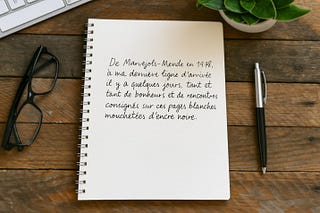 De Marvejols-Mende en 1978,
à ma dernière ligne d'arrivée
il y a quelques jours, tant et
tant de bonheurs et de rencontres
consignés sur ces pages blanches
mouchetées d'encre noire.